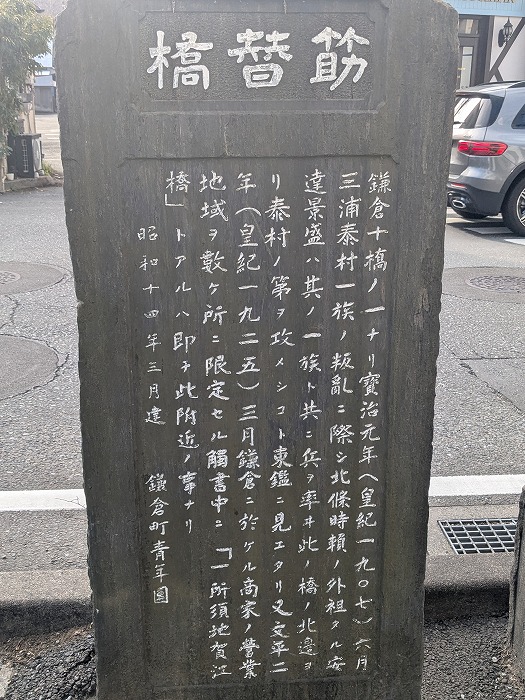 筋替橋
鎌倉十橋ノ一ナリ寶治元年(皇紀一九〇七)六月
三浦泰村一族ノ叛亂ニ際シ北條時頼ノ外祖タル安
達景盛ハ其ノ一族ト共ニ兵ヲ率ヰ此ノ橋ノ北邊ヨ
リ泰村ノ第ヲ攻メシコト東鑑ニ見エタリ又文永二
年(皇紀一九二五)三月鎌倉ニ於ケル商家ノ營業
地域ヲ數ケ所ニ限定セル觸書中ニ「一所須地賀江
橋」トアルハ即チ此附近ノ事ナリ
昭和十四年三月建 鎌倉町青年團